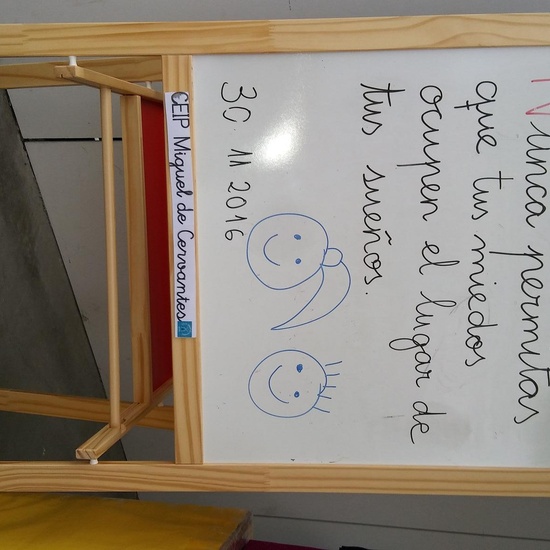 Nunca permitas
que tus miedos
ocupen el lugar de
tus sueños.
30. 11 2016
CEIP Miguel de Cervantes